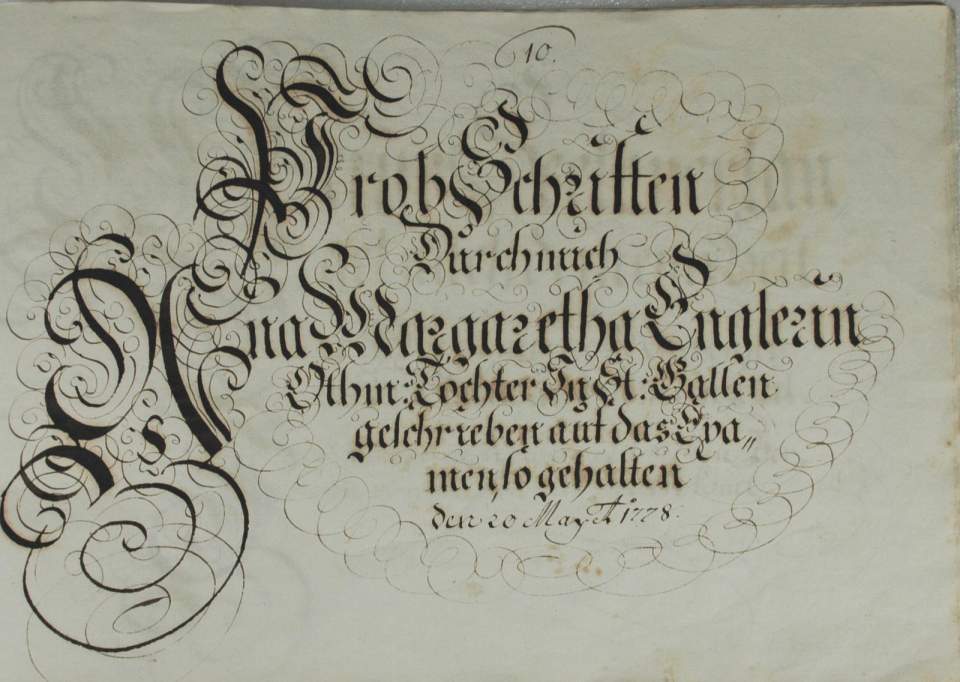 10.
Prob Schrifften
Durch mich
Ana Margaretha Englerin
Othm: Tochter In St: Gallen
geschrieben auf das Exa„
men, so gehalten
den 20 May Aº 1778.